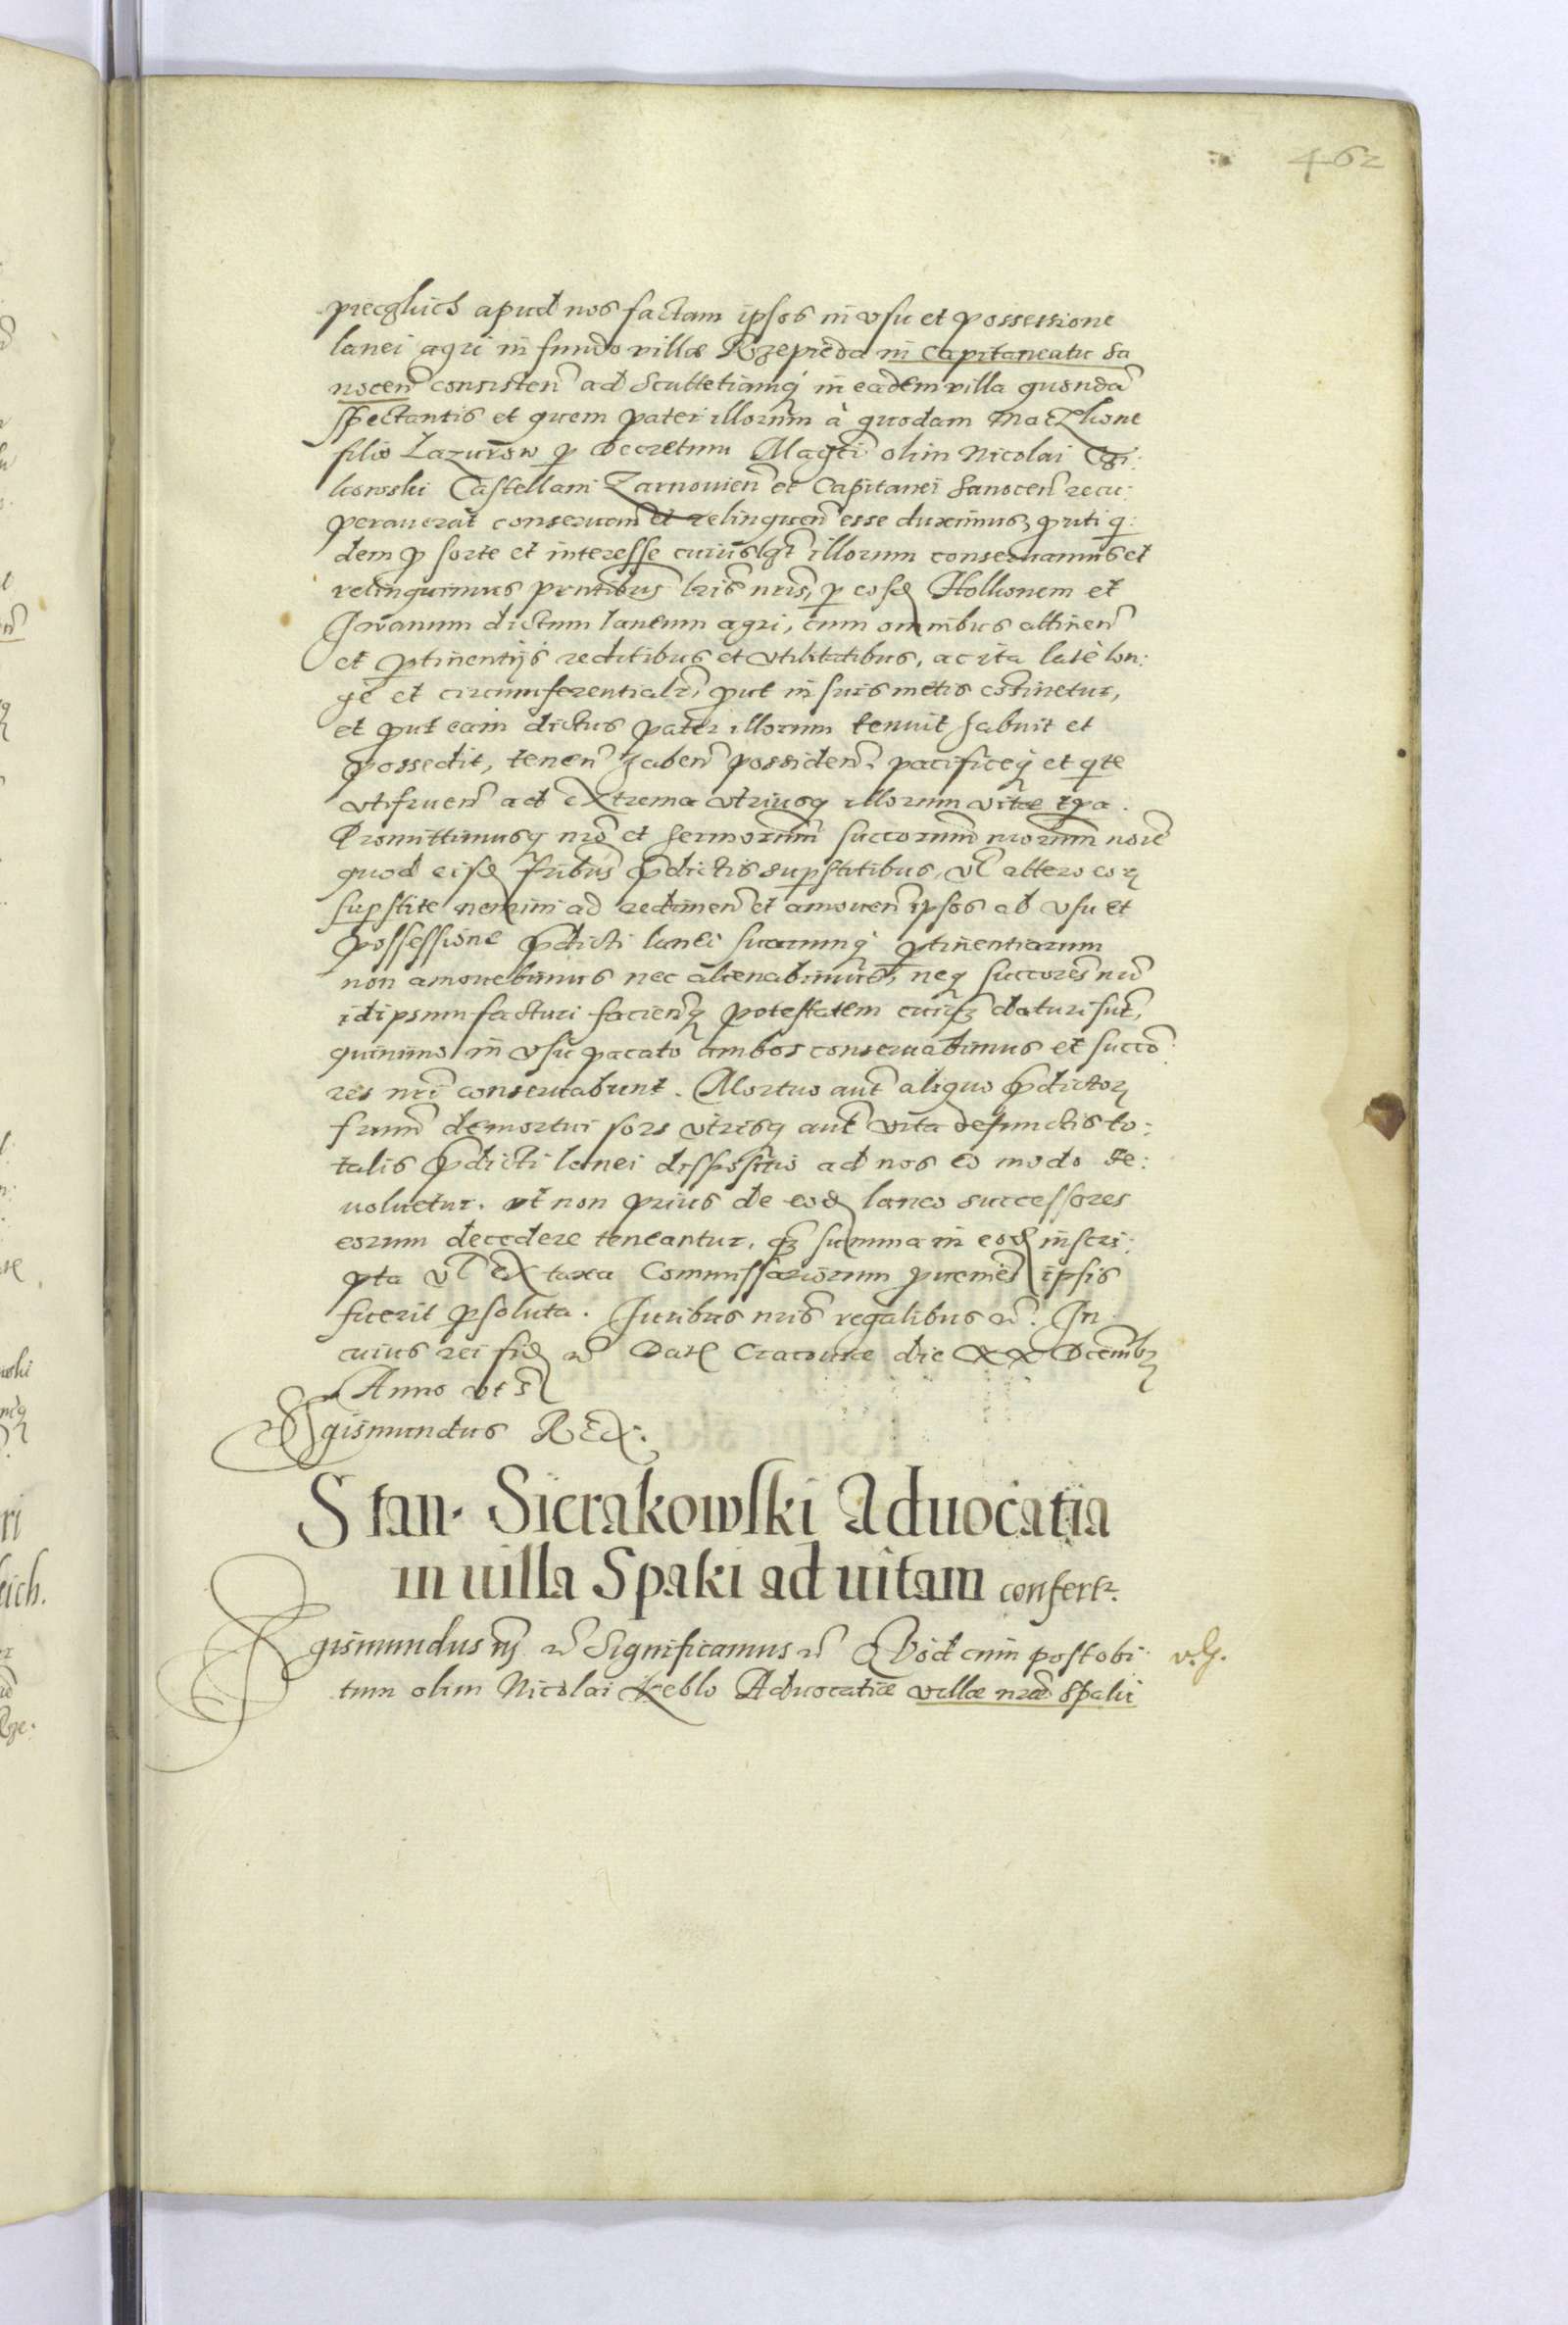 462
precghich apud nos factam ipsos in vsu et possessione
lanei agri in fundo villæ Rzepieda in Capitaneatu Sa
nocen̄ consisten̄ ad Scultetiamq̨ in eadem villa quondā
spectantis et quem pater illorum à quodam Maczkone
filio Lazurow ꝑ decretum Magci olim Nicolai Czi:
kowski Castellani Zarnouien̄ et Capitanei Sanocen̄ recu:
perauerat conseruan̄ et relinquen̄ esse duximus, ꝓuti q̨:
dem ꝓ sorte et interesse cuiuslꝫt illorum conseruamus et
relinquimus pn̄tibus lr̄is nr̄is, ꝑ eosd̨ Holkonem et
Jwanum dictum laneum agri, cum omnibus attinen̄
et ꝑtinentijs reditibus et vtilitatibus, ac ita latè lon:
gè et circumferentialr̄, ꝓut in suis metis cōtinetur,
et ꝓut eam dictus pater illorum tenuit habuit et
possedit, tenen̄ haben̄ possiden̄, pacificeq̨ et q̄te
vtifruen̄ ad extrema vtriusq̨ illorum vitæ tp̄a.
Promittimusq̨ nr̄o et Sermorum̄ succorum̄ nr̄orum̄ noīe
quod eisd̨ fr̄ibus p̄dictis suꝑstitibus, vl̄ altero eoꝝ
suꝑstite nemini ad redimen̄ et amouen̄ ipsos ab vsu et
possessione p̄dicti lanei suarumq̨ ꝑtinentiarum
non amouebimus nec alienabimus, neq̨ succores nr̄i
id ipsum facturi faciendiq̨ potestatem cuiq̨ꝫ daturi sūt,
quinimo in vsu pacato ambos conseruabimus et succo
res nr̄i conseruabunt. Mortuo aut̄ aliquo p̄dictoꝝ
fr̄um̄ demortui sors vtrisq̨ aut̄ vita defunctis to:
talis p̄dicti lanei dispositio ad nos eo modo de:
uoluetur. vt non prius de eod̨ laneo successores
eorum decedere teneantur, q̨ꝫ summa in eod̨ inscri:
pta vl̄ ex taxa Commissariorum ꝓuenien̄ ipsis
fuerit ꝑsoluta. Juribus nr̄is regalibus ꝛc̄. In
cuius rei fid̨ ꝛc̄ Datꝭ Cracouiæ die XX Dcembꝫ
Anno vt s̄
Sgismundus Rex.
Stan. Sierakowski Aduocatia
in uilla Spaki ad uitam confertꝛ.
Sgismundus iij ꝛc̄ Significamus ꝛc̄ Qvod cum post obi
tum olim Nicolai Keblo Aduocatiæ villæ nr̄æ Spaki